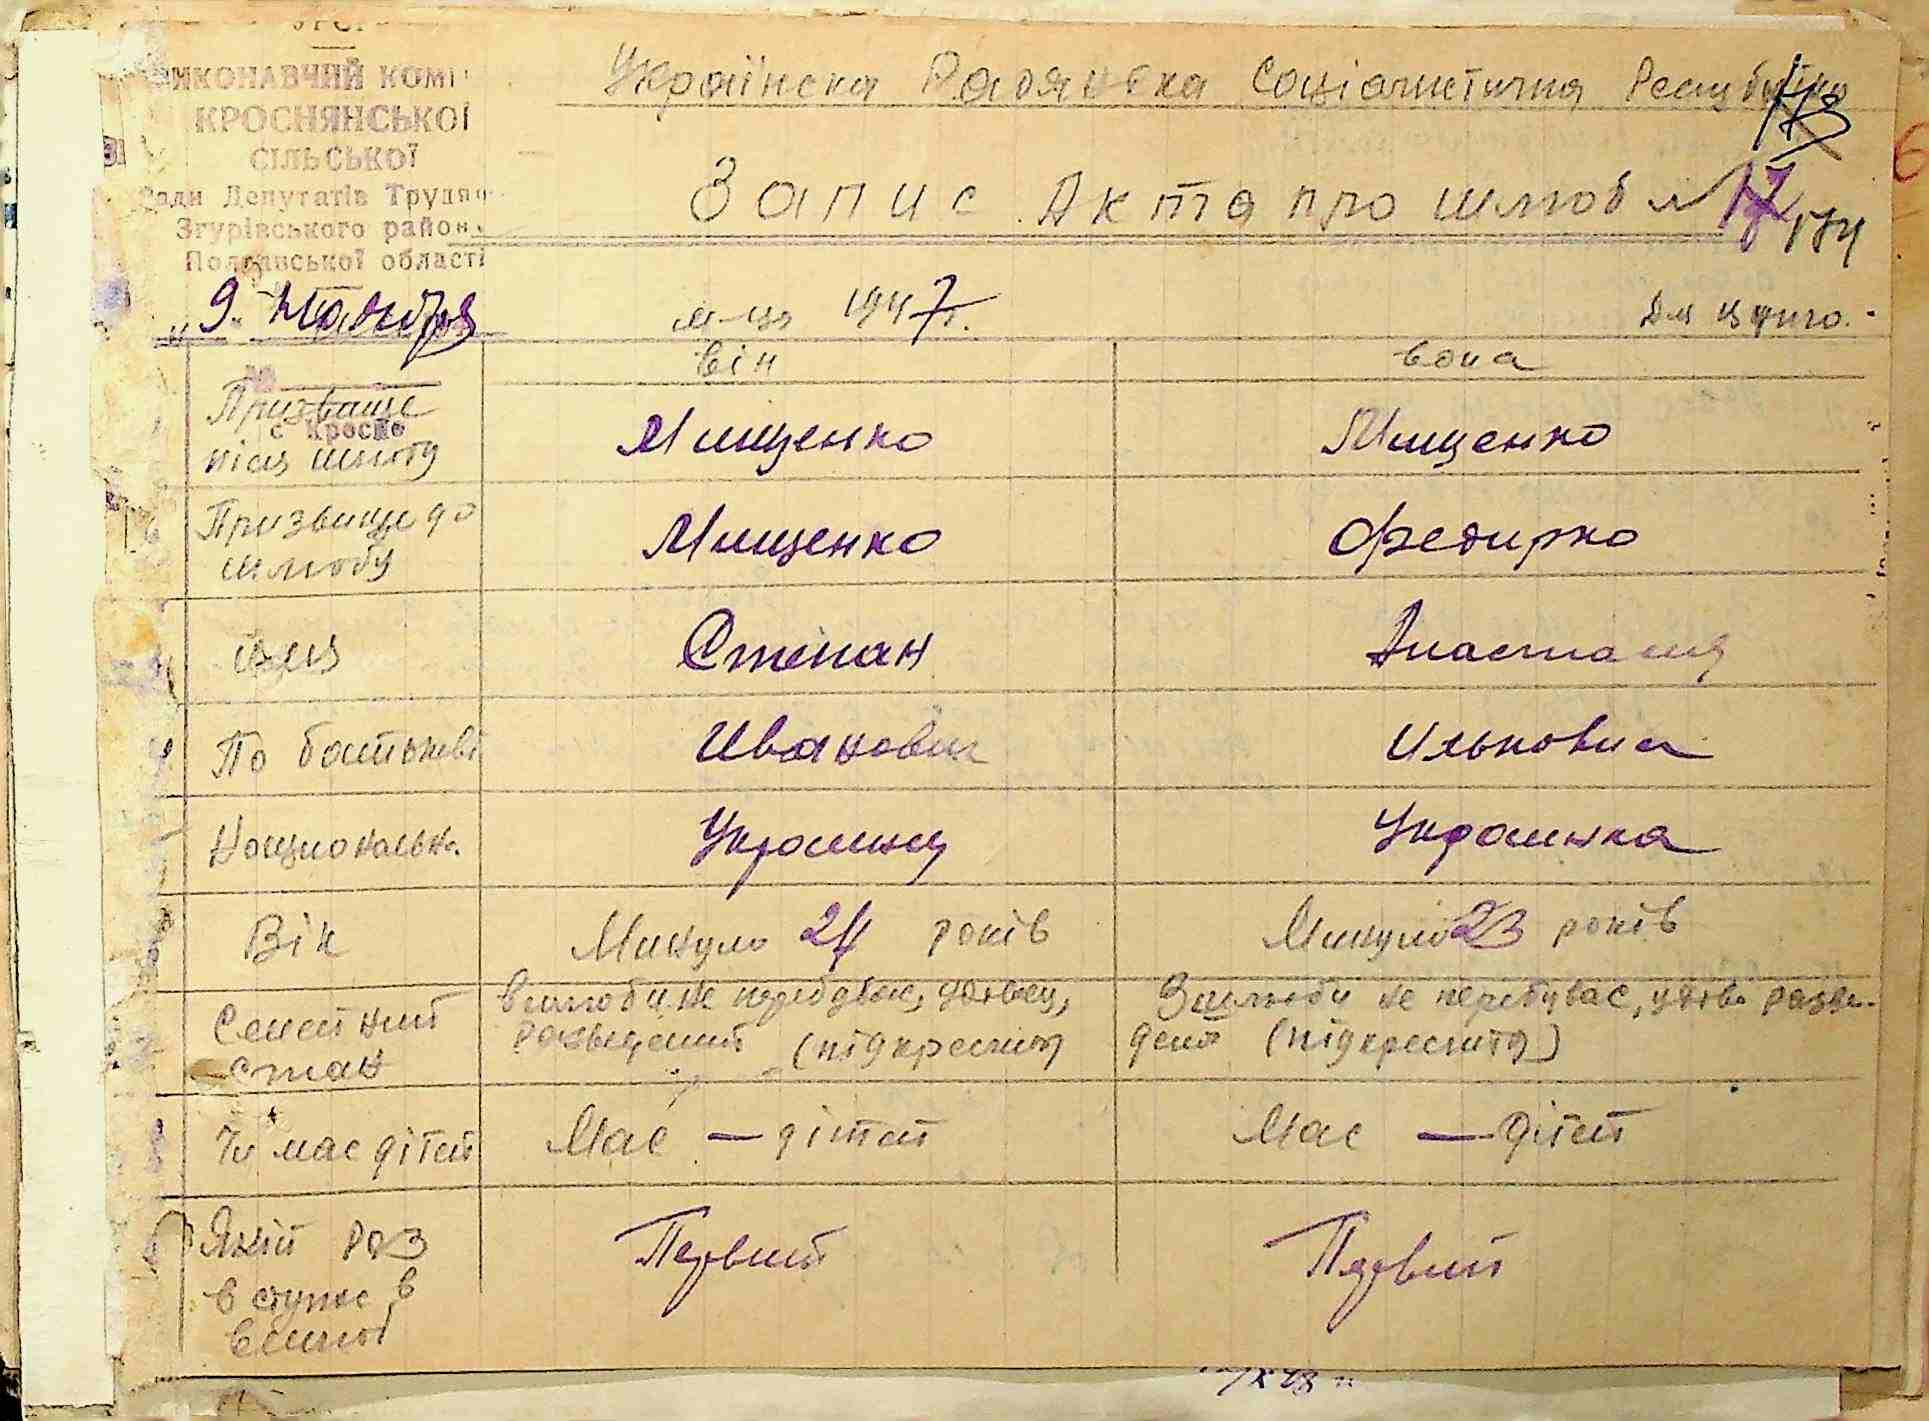 УРСР
ВИКОНАВЧИЙ КОМІ
КРОСНЯНСЬКОЇ
СІЛЬСЬКОЇ
Ради Депутатів Трудящ
Згурівського район.
Полтавської області
с Кросно
Українска Радянска Соціалистична Республіка
173
Запис Акта про шлюб № 17 174
"9" Ноября м-ця 1947 г.
він вона
Призвище після шлюбу Мищенко Мищенко
Призвище до шлюбу Мищенко Федирко
імя Степан Анастасия
По батькові Иванович Ильковна
Национальн. Украинец Украинка
Вік Минуло 24 років Минуло 23 років
Семейний стан
вшлюби не перебував, удовец, розведений (підкреслит)
Вшлюби не перебуває, удова разведена (підкреслить)
Чи має дітей Має — дітей Має — дітей
Який раз вступає в шлюб Первий Первий